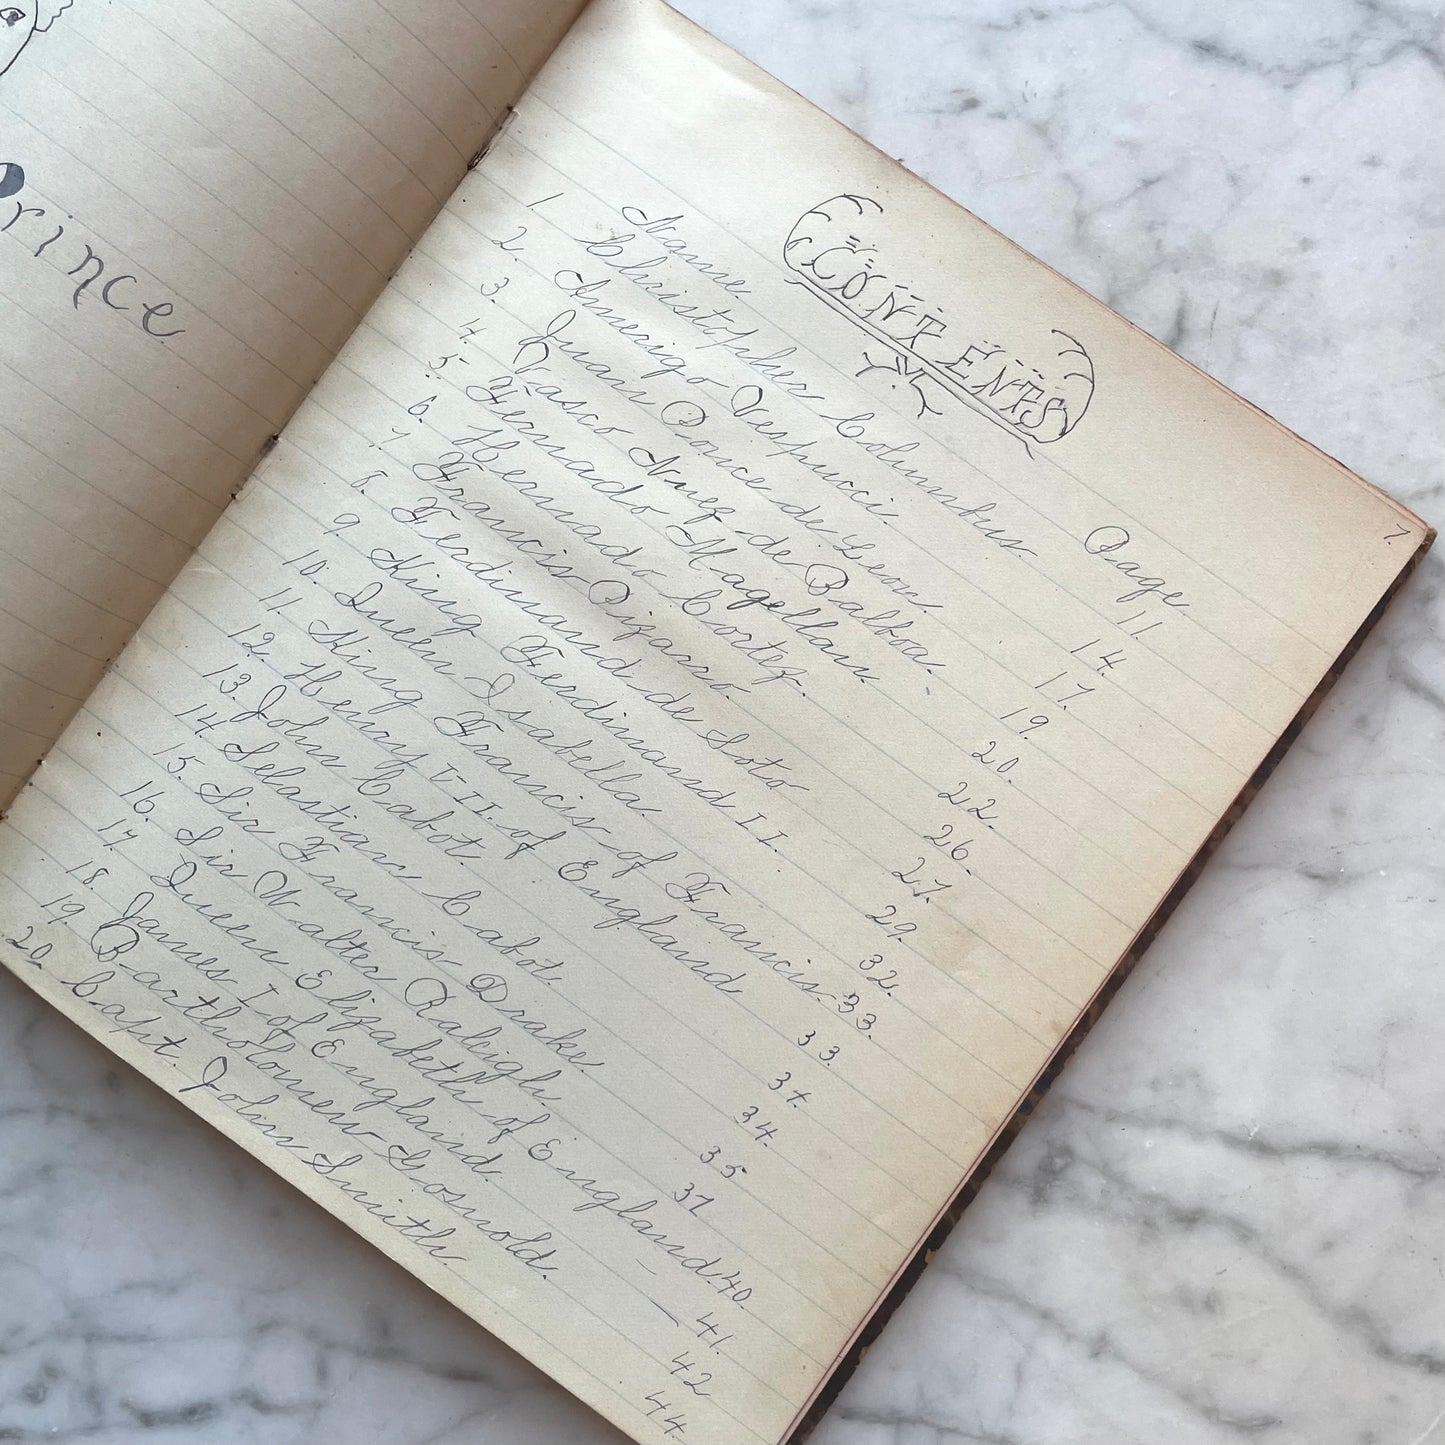 Prince
7.
CONTENTS
Name Page
1. Christopher Columbus 11.
2. Amerigo Vespucci. 14
3. Juan Ponce de Leon 17.
4. Vasco Nuez de Balboa. 19.
5. Fernado Magellan. 20.
6. Hernado Cortez. 22.
7. Francis Pizarro. 26.
8. Ferdinand de Soto 27.
9. King Ferdinand II. 29.
10. Queen Isabella. 32.
11. King Francis of Francis. 33.
12. Henry VII. of England 33.
13. John Cabot 34.
14. Sebastian Cabot. 34.
15. Sir Francis Drake. 35
16. Sir Walter Raleigh. 37
17. Queen Elizabeth of England. 40.
18. James I of England. 41.
19. Bartholomew Gosnold. 42
20. Capt. John Smith. 44.